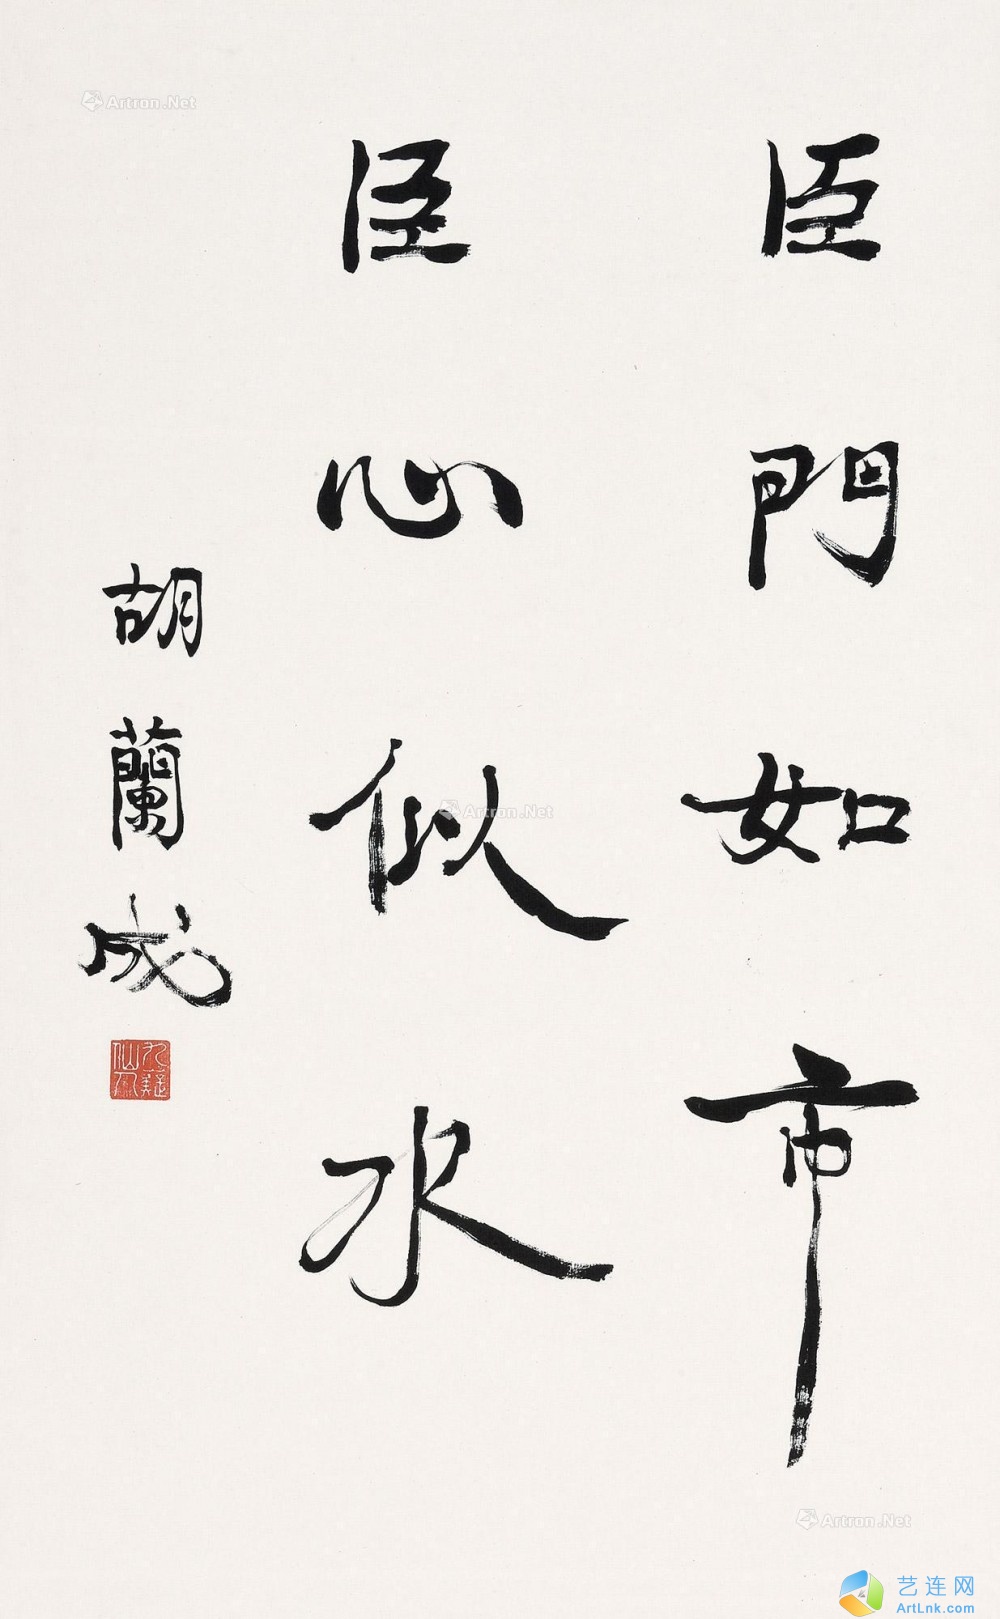 臣門如市
臣心似水
胡蘭成
九疑仙人
Artron.Net
Artron.Net
Artron.Net
艺连网
ArtLnk.com